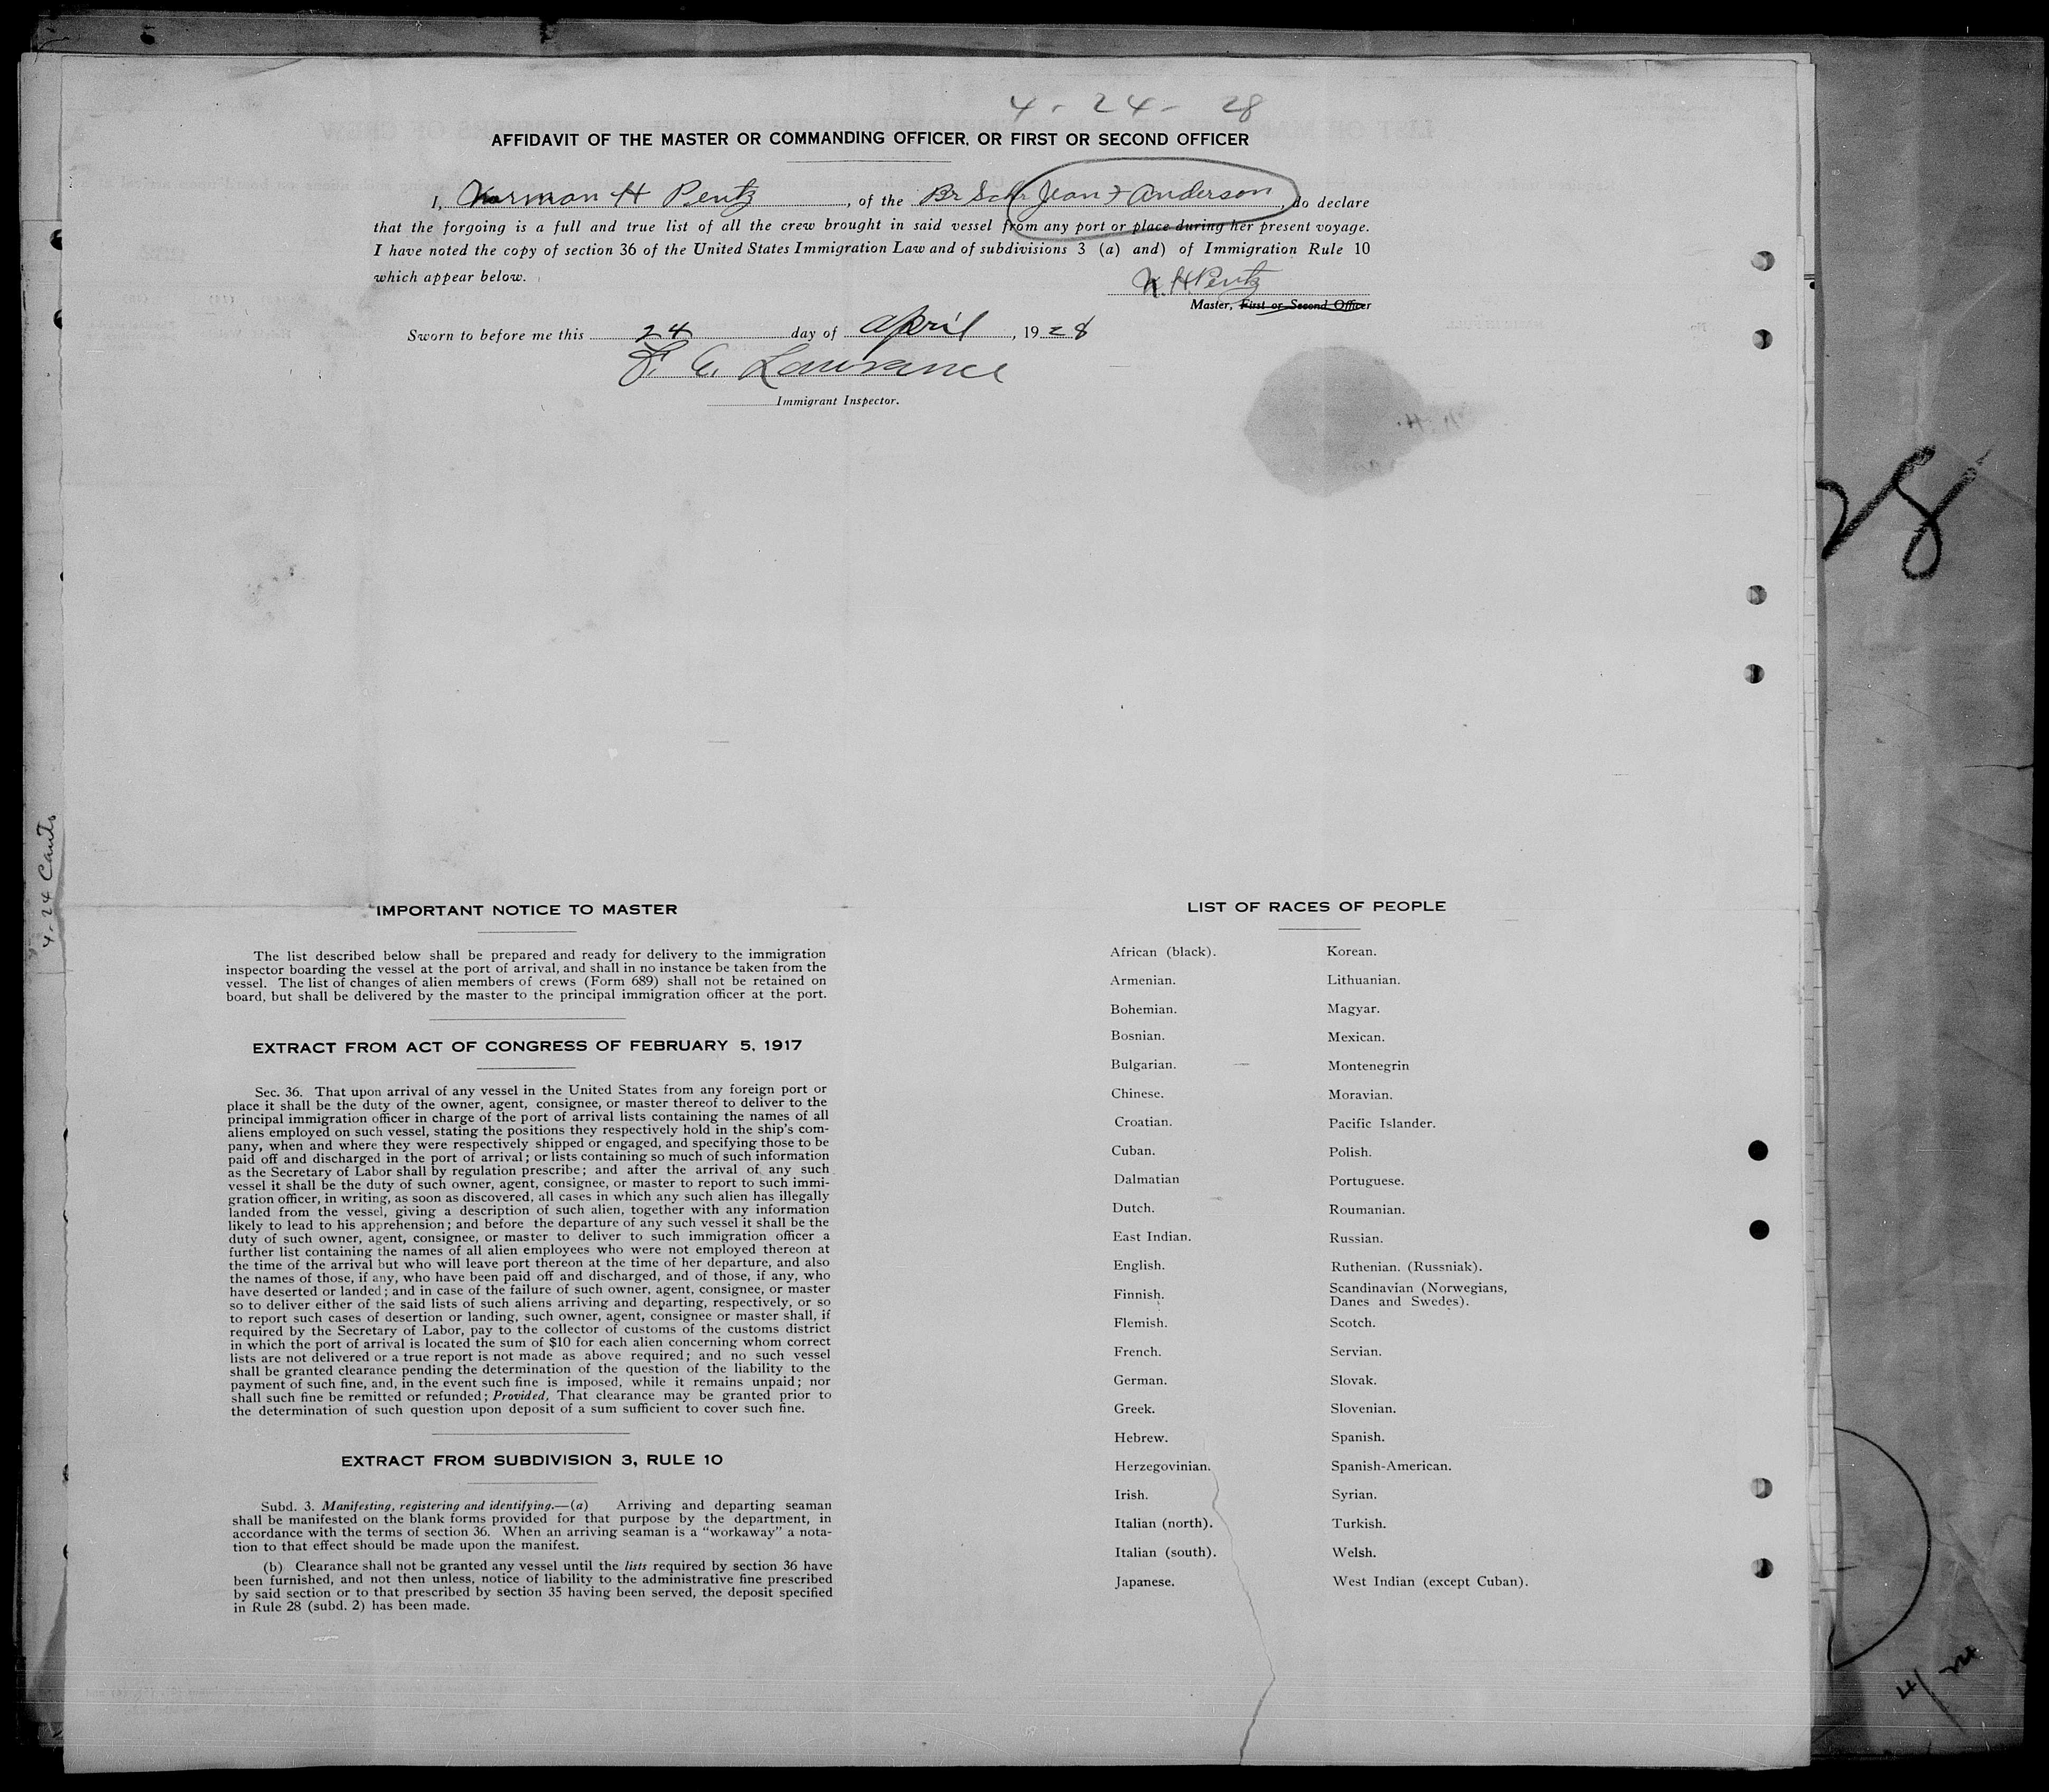 4 - 24 - 28
AFFIDAVIT OF THE MASTER OR COMMANDING OFFICER, OR FIRST OR SECOND OFFICER
I, Norman H Pentz, of the Br Schr Jean F Anderson, do declare
that the forgoing is a full and true list of all the crew brought in said vessel from any port or place during her present voyage.
I have noted the copy of section 36 of the United States Immigration Law and of subdivisions 3 (a) and) of Immigration Rule 10
which appear below.
N. H Pentz
Master, First or Second Officer
Sworn to before me this 24 day of April, 1928
Lawrance
Immigrant Inspector.
28
4-24
IMPORTANT NOTICE TO MASTER
The list described below shall be prepared and ready for delivery to the immigration
inspector boarding the vessel at the port of arrival, and shall in no instance be taken from the
vessel. The list of changes of alien members of crews (Form 689) shall not be retained on
board, but shall be delivered by the master to the principal immigration officer at the port.
EXTRACT FROM ACT OF CONGRESS OF FEBRUARY 5, 1917
Sec. 36. That upon arrival of any vessel in the United States from any foreign port or
place it shall be the duty of the owner, agent, consignee, or master thereof to deliver to the
principal immigration officer in charge of the port of arrival lists containing the names of all
aliens employed on such vessel, stating the positions they respectively hold in the ship's com-
pany, when and where they were respectively shipped or engaged, and specifying those to be
paid off and discharged in the port of arrival; or lists containing so much of such information
as the Secretary of Labor shall by regulation prescribe; and after the arrival of any such
vessel it shall be the duty of such owner, agent, consignee, or master to report to such immi-
gration officer, in writing, as soon as discovered, all cases in which any such alien has illegally
landed from the vessel, giving a description of such alien, together with any information
likely to lead to his apprehension; and before the departure of any such vessel it shall be the
duty of such owner, agent, consignee, or master to deliver to such immigration officer a
further list containing the names of all alien employees who were not employed thereon at
the time of the arrival but who will leave port thereon at the time of her departure, and also
the names of those, if any, who have been paid off and discharged, and of those, if any, who
have deserted or landed; and in case of the failure of such owner, agent, consignee, or master
so to deliver either of the said lists of such aliens arriving and departing, respectively, or so
to report such cases of desertion or landing, such owner, agent, consignee or master shall, if
required by the Secretary of Labor, pay to the collector of customs of the customs district
in which the port of arrival is located the sum of $10 for each alien concerning whom correct
lists are not delivered or a true report is not made as above required; and no such vessel
shall be granted clearance pending the determination of the question of the liability to the
payment of such fine, and, in the event such fine is imposed, while it remains unpaid; nor
shall such fine be remitted or refunded; Provided, That clearance may be granted prior to
the determination of such question upon deposit of a sum sufficient to cover such fine.
EXTRACT FROM SUBDIVISION 3, RULE 10
Subd. 3. Manifesting, registering and identifying.—(a) Arriving and departing seaman
shall be manifested on the blank forms provided for that purpose by the department, in
accordance with the terms of section 36. When an arriving seaman is a "workaway" a nota-
tion to that effect should be made upon the manifest.
(b) Clearance shall not be granted any vessel until the lists required by section 36 have
been furnished, and not then unless, notice of liability to the administrative fine prescribed
by said section or to that prescribed by section 35 having been served, the deposit specified
in Rule 28 (subd. 2) has been made.
LIST OF RACES OF PEOPLE
African (black).
Armenian.
Bohemian.
Bosnian.
Bulgarian.
Chinese.
Croatian.
Cuban.
Dalmatian
Dutch.
East Indian.
English.
Finnish.
Flemish.
French.
German.
Greek.
Hebrew.
Herzegovinian.
Irish.
Italian (north).
Italian (south).
Japanese.
Korean.
Lithuanian.
Magyar.
Mexican.
Montenegrin
Moravian.
Pacific Islander.
Polish.
Portuguese.
Roumanian.
Russian.
Ruthenian. (Russniak).
Scandinavian (Norwegians,
Danes and Swedes).
Scotch.
Servian.
Slovak.
Slovenian.
Spanish.
Spanish-American.
Syrian.
Turkish.
Welsh.
West Indian (except Cuban).